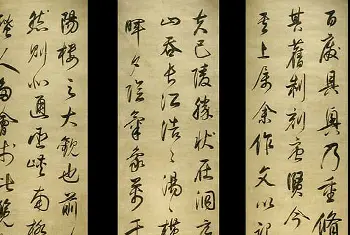 百廢具興乃重脩
其舊制刻唐賢今
其上属余作文以記
夫巴陵勝狀在洞庭
山吞長江浩浩湯湯橫
暉夕陰氣象萬千
陽樓之大觀也前
然則北通巫峽南極
人多會於此覽